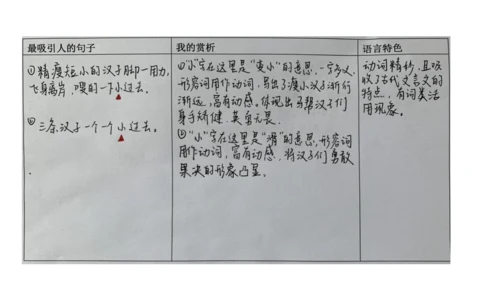 最吸引人的句子
我的赏析
语言特色
①精瘦短小的汉子脚一用力,
飞身离岸,嘿的一下小过去。
②三条汉子一个一个小过去。
①"小"字在这里是"变小"的意思,一字多义,
形容词用作动词,写出了瘦小汉子渐行
渐远,富有动感。体现出
汉子们
身手矫健、英勇无畏。
②"小"字在这里是"滑"的意思,形容词
用作动词,富有动感,将汉子们勇敢
果决的形象凸显。
动词精妙,且吸
收了古代文言文的
特点,有词类活
用现象。